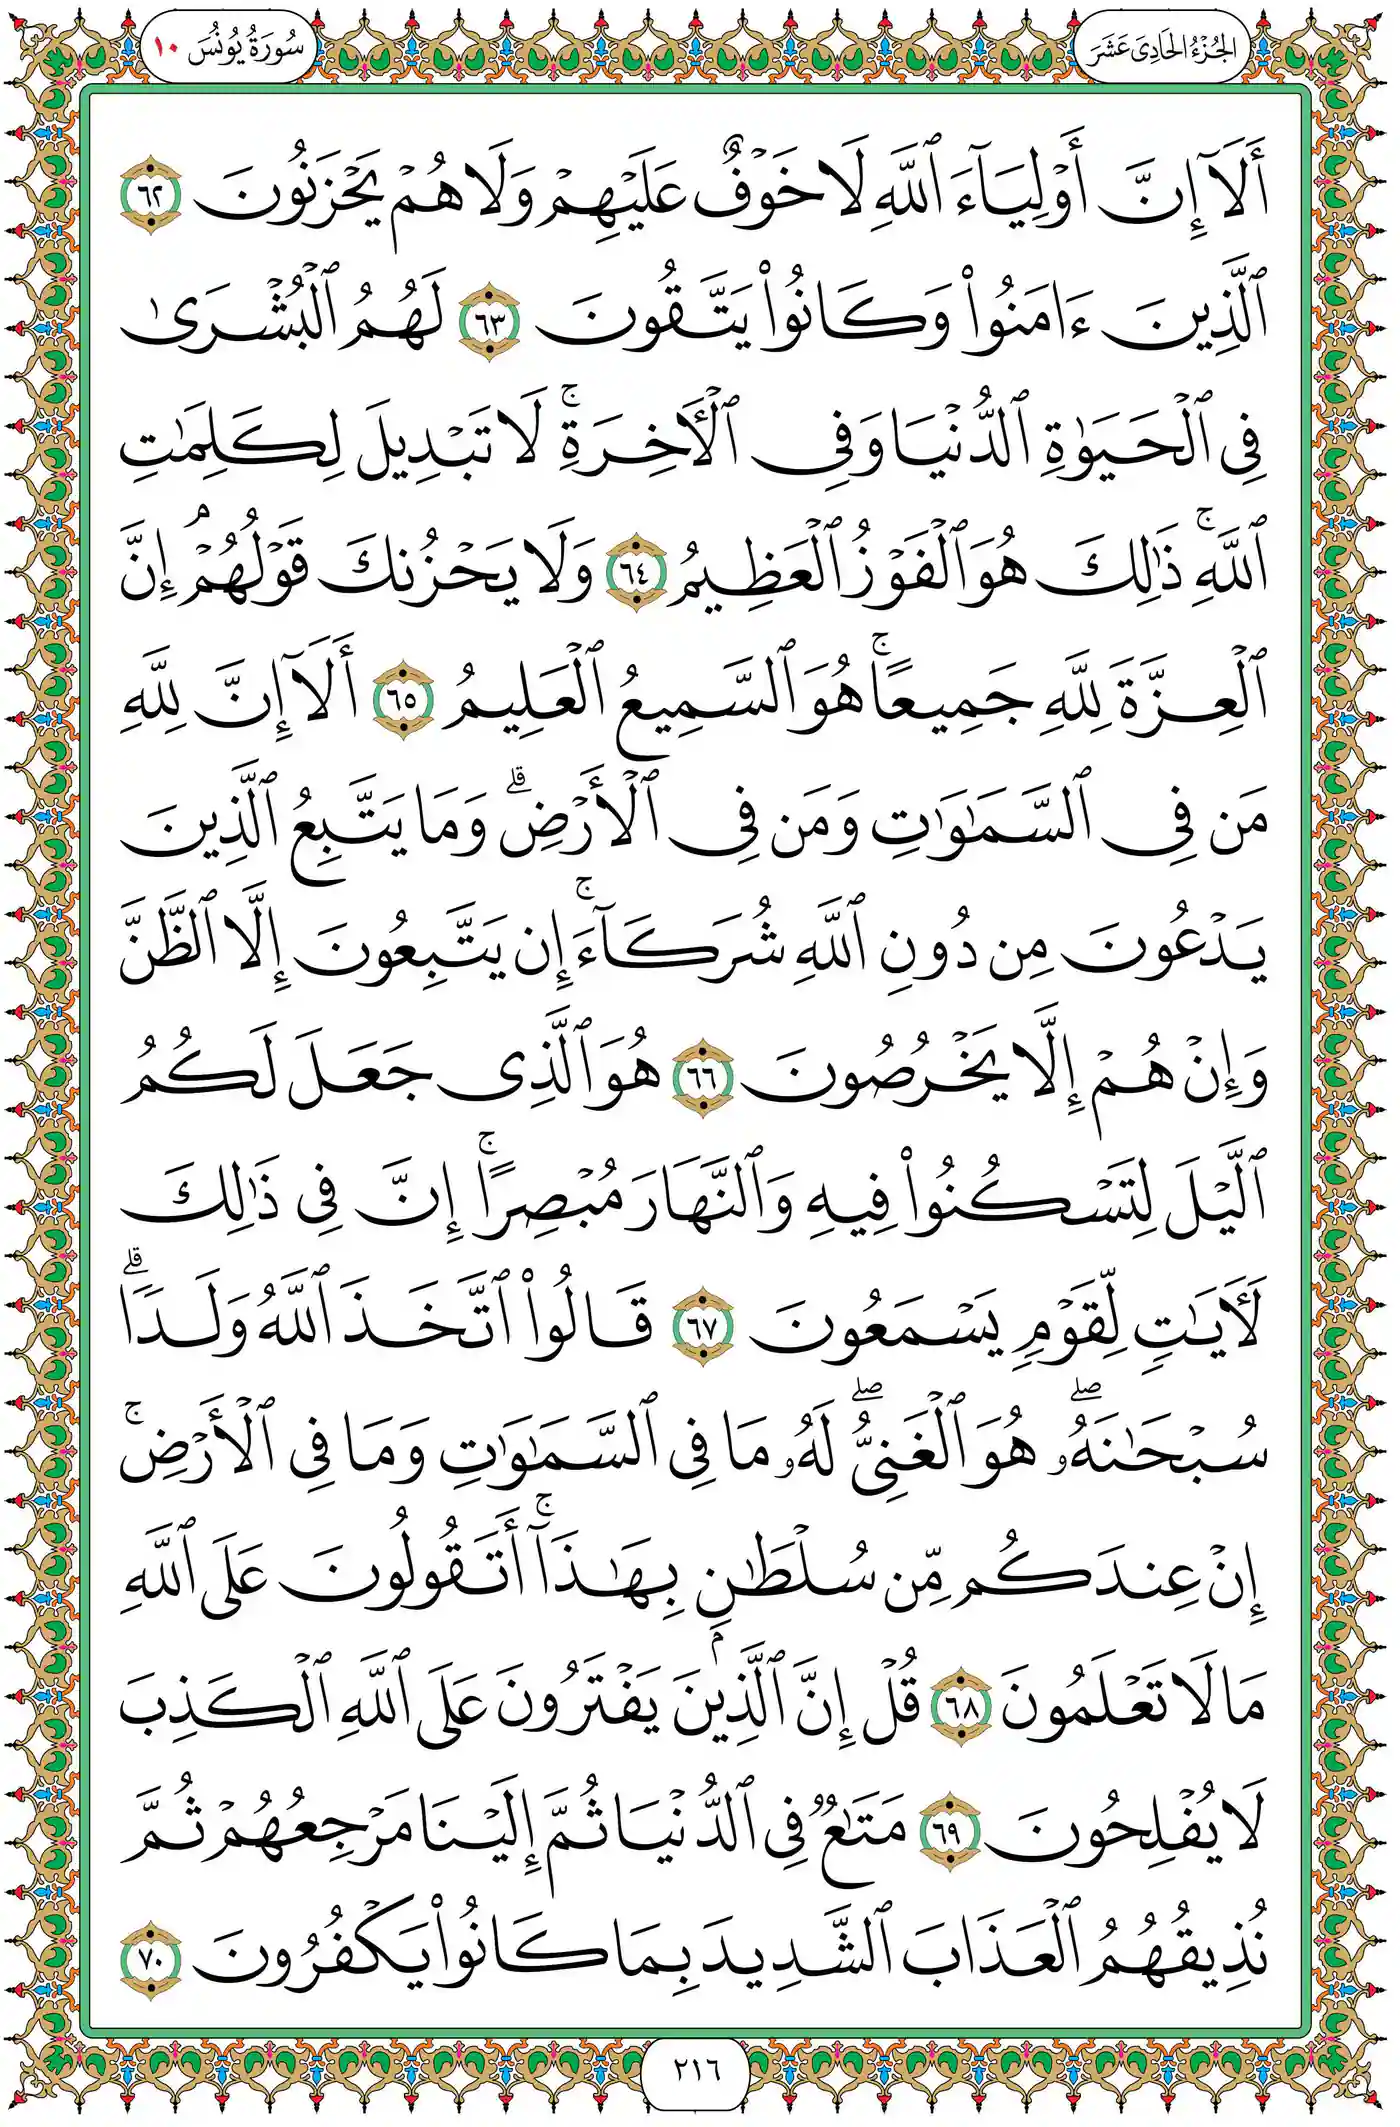 الجُزْءُ الحَادِىَ عَشَرَ
سُورَةُ يُونُسَ ١٠
أَلَآ إِنَّ أَوْلِيَآءَ ٱللَّهِ لَا خَوْفٌ عَلَيْهِمْ وَلَا هُمْ يَحْزَنُونَ ٦٢
ٱلَّذِينَ ءَامَنُوا۟ وَكَانُوا۟ يَتَّقُونَ ٦٣ لَهُمُ ٱلْبُشْرَىٰ
فِى ٱلْحَيَوٰةِ ٱلدُّنْيَا وَفِى ٱلْأَخِرَةِ ۚ لَا تَبْدِيلَ لِكَلِمَٰتِ
ٱللَّهِ ۚ ذَٰلِكَ هُوَ ٱلْفَوْزُ ٱلْعَظِيمُ ٦٤ وَلَا يَحْزُنكَ قَوْلُهُمْ ۘ إِنَّ
ٱلْعِزَّةَ لِلَّهِ جَمِيعًا ۚ هُوَ ٱلسَّمِيعُ ٱلْعَلِيمُ ٦٥ أَلَآ إِنَّ لِلَّهِ
مَن فِى ٱلسَّمَٰوَٰتِ وَمَن فِى ٱلْأَرْضِ ۗ وَمَا يَتَّبِعُ ٱلَّذِينَ
يَدْعُونَ مِن دُونِ ٱللَّهِ شُرَكَآءَ ۚ إِن يَتَّبِعُونَ إِلَّا ٱلظَّنَّ
وَإِنْ هُمْ إِلَّا يَخْرُصُونَ ٦٦ هُوَ ٱلَّذِى جَعَلَ لَكُمُ
ٱلَّيْلَ لِتَسْكُنُوا۟ فِيهِ وَٱلنَّهَارَ مُبْصِرًا ۚ إِنَّ فِى ذَٰلِكَ
لَأَيَٰتٍ لِّقَوْمٍ يَسْمَعُونَ ٦٧ قَالُوا۟ ٱتَّخَذَ ٱللَّهُ وَلَدًا ۗ
سُبْحَٰنَهُۥ ۖ هُوَ ٱلْغَنِىُّ ۖ لَهُۥ مَا فِى ٱلسَّمَٰوَٰتِ وَمَا فِى ٱلْأَرْضِ ۚ
إِنْ عِندَكُم مِّن سُلْطَٰنٍۭ بِهَٰذَآ ۚ أَتَقُولُونَ عَلَى ٱللَّهِ
مَا لَا تَعْلَمُونَ ٦٨ قُلْ إِنَّ ٱلَّذِينَ يَفْتَرُونَ عَلَى ٱللَّهِ ٱلْكَذِبَ
لَا يُفْلِحُونَ ٦٩ مَتَٰعٌ فِى ٱلدُّنْيَا ثُمَّ إِلَيْنَا مَرْجِعُهُمْ ثُمَّ
نُذِيقُهُمُ ٱلْعَذَابَ ٱلشَّدِيدَ بِمَا كَانُوا۟ يَكْفُرُونَ ٧٠
٢١٦